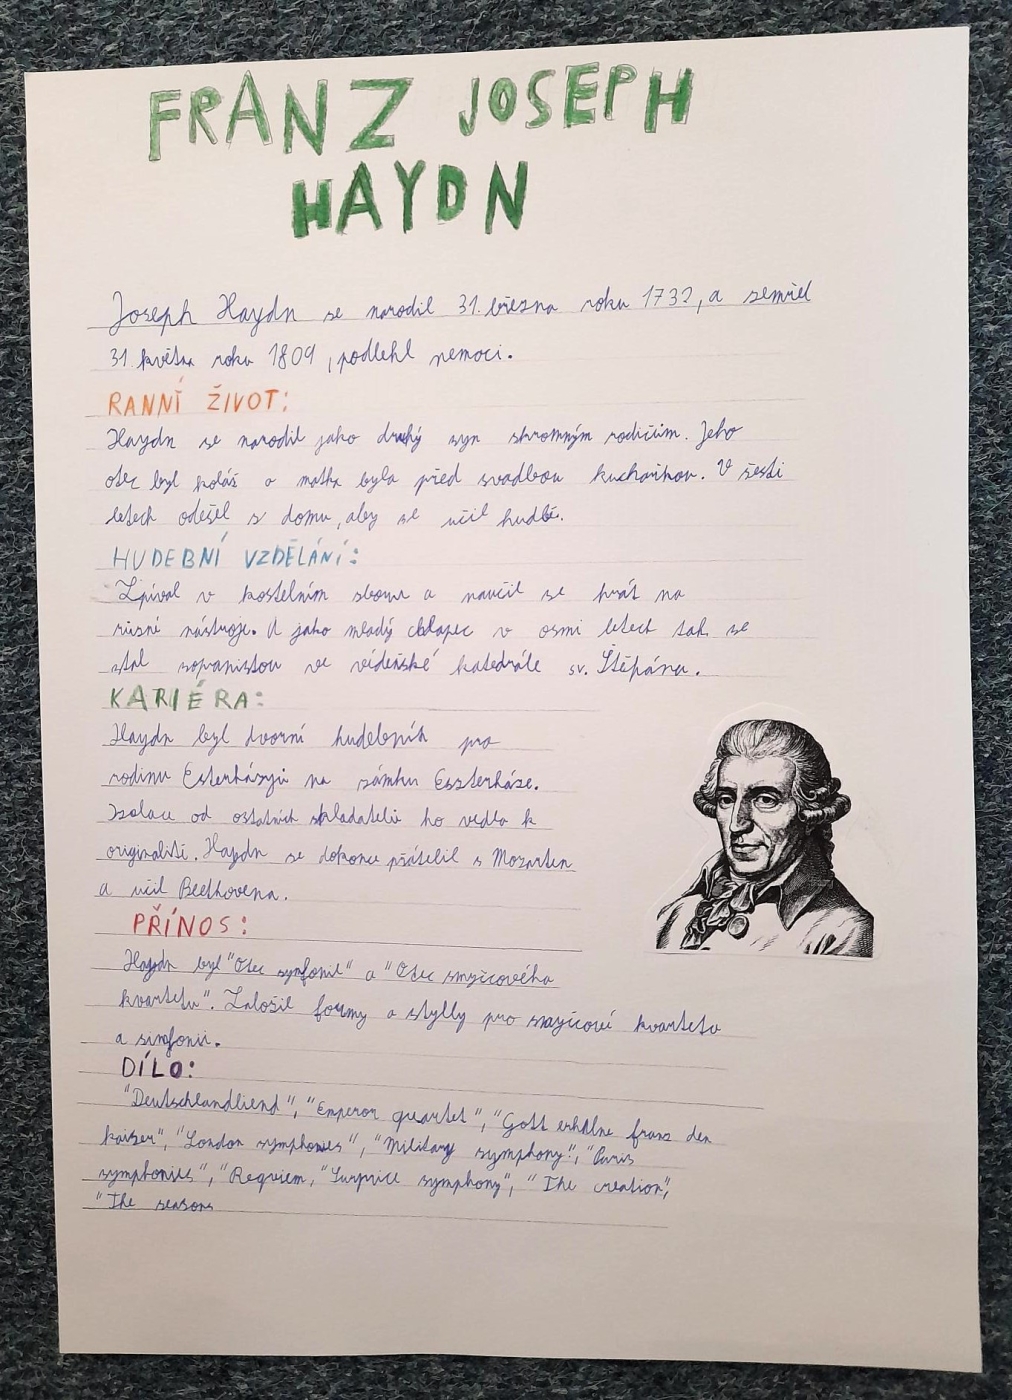 FRANZ JOSEPH
HAYDN
Joseph Haydn se narodil 31. března roku 1732, a zemřel
31. května roku 1809, podlehl nemoci.
RANNÍ ŽIVOT:
Haydn se narodil jako druhý syn skromným rodičům. Jeho
otec byl kolář a matka byla před svadbou kuchařkou. V šesti
letech odešel s domu, aby se učil hudbě.
HUDEBNÍ VZDĚLÁNÍ:
Zpíval v kostelním sboru a naučil se hrát na
různé nástroje. A jako mladý chlapec v osmi letech tak se
stal sopranistou ve vídeňské katedrále sv. Štěpána.
KARIÉRA:
Haydn byl dvorní hudebník pro
rodinu Esterházyů na zámku Eszterháze.
Izolace od ostatních skladatelů ho vedla k
originalitě. Haydn se dokonce přátelil s Mozartem
a učil Beethovena.
PŘÍNOS:
Haydn byl "Otec symfonií" a "Otec smyčcového
kvartetu". Založil formy a stylly pro smyčcové kvarteto
a simfonii.
DÍLO:
"Deutschlandliend", "Emperor quartet", "Gott erhalne franz den
kaiser", "London symphonies", "Military symphony", "Paris
symphonies", "Requiem, "Surprice symphony", "The creation",
"The seasons